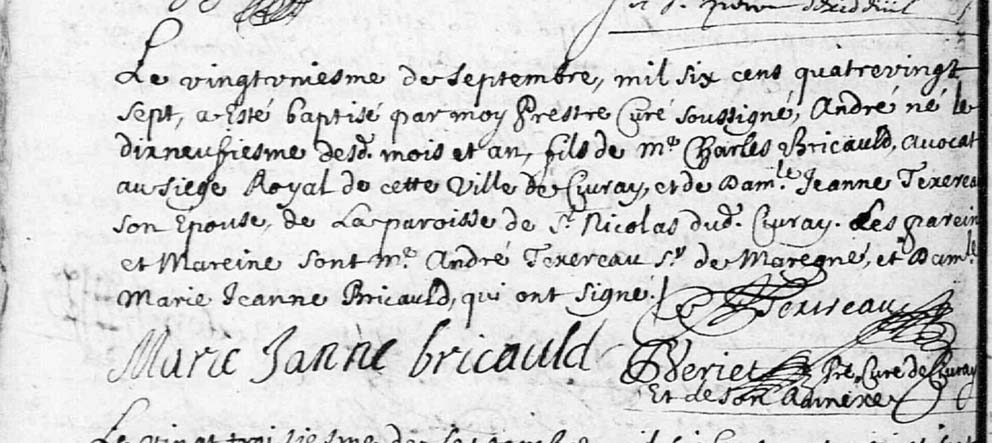 Le vingtvniesme de Septembre, mil six cens quatrevingt
sept, a esté baptisé par moy Prestre Curé soussigné, André né le
dixneufiesme desd. mois et an, fils de Me Charles Bricauld, avocat
au siege Royal de cette Ville de Civray, et de Damle Jeanne Texereau
son Epouse, de La paroisse de St Nicolas dud. Civray. Les parein
et Mareine sont Me André Texereau Sr de Maregné, et Damle
Marie Jeanne Bricauld, qui ont signé.
Texereau
Marie Janne bricauld
Ptre Curé de Civray
Et de son Adnexe
Le vingt troisiesme de Septembre mil six